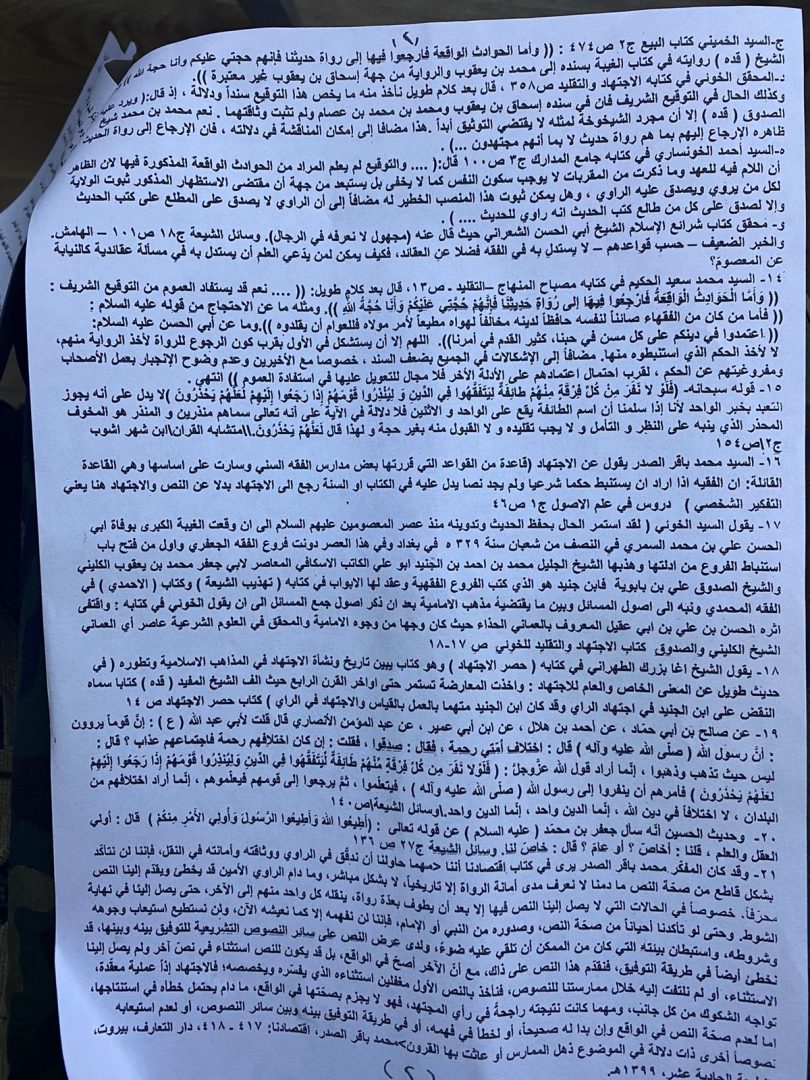 (٢)
ج-السيد الخميني كتاب البيع ج٢ ص٤٧٤ : (( وأما الحوادث الواقعة فارجعوا فيها إلى رواة حديثنا فإنهم حجتي عليكم وأنا حجة الله ))
الشيخ ( قده ) روايته في كتاب الغيبة بسنده إلى محمد بن يعقوب والرواية من جهة إسحاق بن يعقوب غير معتبرة )).
د-المحقق الخوئي في كتابه الاجتهاد والتقليد ص٣٥٨ ، قال بعد كلام طويل نأخذ منه ما يخص هذا التوقيع سنداً ودلالة ، إذ قال:( ويرد عليه
وكذلك الحال في التوقيع الشريف فان في سنده إسحاق بن يعقوب ومحمد بن محمد بن عصام ولم تثبت وثاقتهما . نعم محمد بن محمد شيخ
الصدوق ( قده ) إلا أن مجرد الشيخوخة لمثله لا يقتضي التوثيق أبداً .هذا مضافا إلى إمكان المناقشة في دلالته ، فان الإرجاع إلى رواة الحديث
ظاهره الإرجاع إليهم بما هم رواة حديث لا بما أنهم مجتهدون ...) .
ه-السيد أحمد الخونساري في كتابه جامع المدارك ج٣ ص١٠٠ قال:( .... والتوقيع لم يعلم المراد من الحوادث الواقعة المذكورة فيها لان الظاهر
أن اللام فيه للعهد وما ذكرت من المقربات لا يوجب سكون النفس كما لا يخفى بل يستبعد من جهة أن مقتضى الاستظهار المذكور ثبوت الولاية
لكل من يروي ويصدق عليه الراوي ، وهل يمكن ثبوت هذا المنصب الخطير له مضافاً إلى أن الراوي لا يصدق على المطلع على كتب الحديث
وإلا لصدق على كل من طالع كتب الحديث انه راوي للحديث .... ) .
و- محقق كتاب شرائع الإسلام الشيخ أبي الحسن الشعراني حيث قال عنه (مجهول لا نعرفه في الرجال). وسائل الشيعة ج١٨ ص١٠١ – الهامش.
والخبر الضعيف – حسب قواعدهم – لا يستدل به في الفقه فضلا عن العقائد، فكيف يمكن لمن يدّعي العلم أن يستدل به في مسألة عقائدية كالنيابة
عن المعصومّ؟
١٤- السيد محمد سعيد الحكيم في كتابه مصباح المنهاج –التقليد - ص١٣، قال بعد كلام طويل: (( .... نعم قد يستفاد العموم من التوقيع الشريف :
(( وَأَمَّا الْحَوَادِثُ الْوَاقِعَةُ فَارْجِعُوا فِيهَا إِلَى رُوَاةِ حَدِيثِنَا فَإِنَّهُمْ حُجَّتِي عَلَيْكُمْ وَأَنَا حُجَّةُ اللَّهِ )). ومثله ما عن الاحتجاج من قوله عليه السلام :
(( فأما من كان من الفقهاء صائناً لنفسه حافظاً لدينه مخالفاً لهواه مطيعاً لأمر مولاه فللعوام أن يقلدوه )).وما عن أبي الحسن عليه السلام:
(( اعتمدوا في دينكم على كل مسن في حبنا، كثير القدم في أمرنا)). اللهم إلا أن يستشكل في الأول بقرب كون الرجوع للرواة لأخذ الرواية منهم،
لا لأخذ الحكم الذي استنبطوه منها. مضافاً إلى الإشكالات في الجميع بضعف السند ، خصوصا مع الأخيرين وعدم وضوح الإنجبار بعمل الأصحاب
ومفروغيتهم عن الحكم ، لقرب احتمال اعتمادهم على الأدلة الأخر فلا مجال للتعويل عليها في استفادة العموم )) انتهى .
١٥- قوله سبحانه- (فَلَوْ لَا نَفَرَ مِنْ كُلِّ فِرْقَةٍ مِنْهُمْ طَائِفَةٌ لِيَتَفَقَّهُوا فِي الدِّينِ وَ لِيُنْذِرُوا قَوْمَهُمْ إِذَا رَجَعُوا إِلَيْهِمْ لَعَلَّهُمْ يَحْذَرُونَ )لا يدل على أنه يجوز
التعبد بخبر الواحد لأنا إذا سلمنا أن اسم الطائفة يقع على الواحد و الاثنين فلا دلالة في الآية على أنه تعالى سماهم منذرين و المنذر هو المخوف
المحذر الذي ينبه على النظر و التأمل و لا يجب تقليده و لا القبول منه بغير حجة و لهذا قال لَعَلَّهُمْ يَحْذَرُونَ.\\متشابه القران\ابن شهر اشوب
ج٢\ص١٥٤
١٦- السيد محمد باقر الصدر يقول عن الاجتهاد (قاعدة من القواعد التي قررتها بعض مدارس الفقه السني وسارت على اساسها وهي القاعدة
القائلة: ان الفقيه اذا اراد ان يستنبط حكما شرعيا ولم يجد نصا يدل عليه في الكتاب او السنة رجع الى الاجتهاد بدلا عن النص والاجتهاد هنا يعني
التفكير الشخصي ) دروس في علم الاصول ج١ ص٤٦
١٧- يقول السيد الخوئي ( لقد استمر الحال بحفظ الحديث وتدوينه منذ عصر المعصومين عليهم السلام الى ان وقعت الغيبة الكبرى بوفاة ابي
الحسن علي بن محمد السمري في النصف من شعبان سنة ٣٢٩ ه في بغداد وفي هذا العصر دونت فروع الفقه الجعفري واول من فتح باب
استنباط الفروع من ادلتها وهذبها الشيخ الجليل محمد بن احمد بن الجُنيد ابو علي الكاتب الاسكافي المعاصر لابي جعفر محمد بن يعقوب الكليني
والشيخ الصدوق علي بن بابوية فابن جنيد هو الذي كتب الفروع الفقهية وعقد لها الابواب في كتابه ( تهذيب الشيعة ) وكتاب ( الاحمدي ) في
الفقه المحمدي ونبه الى اصول المسائل وبين ما يقتضية مذهب الامامية بعد ان ذكر اصول جمع المسائل الى ان يقول الخوئي في كتابه : واقتفى
اثره الحسن بن علي بن ابي عقيل المعروف بالعماني الحذاء حيث كان وجها من وجوه الامامية والمحقق في العلوم الشرعية عاصر أي العماني
الشيخ الكليني والصدوق كتاب الاجتهاد والتقليد للخوئي ص ١٧-١٨
١٨- يقول الشيخ اغا بزرك الطهراني في كتابه ( حصر الاجتهاد ) وهو كتاب يبين تاريخ ونشأة الاجتهاد في المذاهب الاسلامية وتطوره ( في
حديث طويل عن المعنى الخاص والعام للاجتهاد : واخذت المعارضة تستمر حتى اواخر القرن الرابع حيث الف الشيخ المفيد ( قده ) كتابا سماه
النقض على ابن الجنيد في اجتهاد الراي وقد كان ابن الجنيد متهما بالعمل بالقياس والاجتهاد في الراي ) كتاب حصر الاجتهاد ص ١٤
١٩- عن صالح بن أبي حمّاد ، عن أحمد بن هلال ، عن ابن أبي عمير ، عن عبد المؤمن الأنصاري قال قلت لأبي عبد الله ( ع ) : إنَّ قوماً يروون
: أنَّ رسول الله ( صلّى الله عليه وآله ) قال : اختلاف أُمّتي رحمة ، فقال : صدقوا ، فقلت : إن كان اختلافهم رحمة فاجتماعهم عذاب ؟ قال :
ليس حيث تذهب وذهبوا ، إنّما أراد قول الله عزّوجلّ : ( فَلَوْلا نَفَرَ مِن كُلِّ فِرْقَةٍ مِّنْهُمْ طَائِفَةٌ لِّيَتَفَقَّهُوا فِي الدِّينِ وَلِيُنذِرُوا قَوْمَهُمْ إِذَا رَجَعُوا إِلَيْهِمْ
لَعَلَّهُمْ يَحْذَرُونَ ) فأمرهم أن ينفروا إلى رسول الله ( صلّى الله عليه وآله ) ، فيتعلموا ، ثمَّ يرجعوا إلى قومهم فيعلّموهم ، إنّما أراد اختلافهم من
البلدان ، لا اختلافاً في دين الله ، إنّما الدين واحد ، إنّما الدين واحد.\وسائل الشيعة\ص١٤٠
٢٠- وحديث الحسين أنّه سأل جعفر بن محمّد ( عليه السلام ) عن قوله تعالى : (أَطِيعُوا اللَّهَ وَأَطِيعُوا الرَّسُولَ وَأُولِي الأَمْرِ مِنكُمْ ) قال : أولي
العقل والعلم ، قلنا : أخاصّ ؟ أو عامّ ؟ قال : خاصّ لنا. وسائل الشيعة ج٢٧ ص ١٣٦
٢١- وقد كان المفكّر محمد باقر الصدر يرى في كتاب اقتصادنا أننا <مهما حاولنا أن ندقّق في الراوي ووثاقته وأمانته في النقل، فإننا لن نتأكد
بشكل قاطع من صحّة النص ما دمنا لا نعرف مدى أمانة الرواة إلا تاريخياً، لا بشكل مباشر، وما دام الراوي الأمين قد يخطئ ويقدّم إلينا النص
محرّفاً، خصوصاً في الحالات التي لا يصل إلينا النص فيها إلا بعد أن يطوف بعدّة رواة، ينقله كل واحد منهم إلى الآخر، حتى يصل إلينا في نهاية
الشوط. وحتى لو تأكدنا أحياناً من صحّة النص، وصدوره من النبي أو الإمام، فإننا لن نفهمه إلا كما نعيشه الآن، ولن نستطيع استيعاب وجوهه
وشروطه، واستبطان بيئته التي كان من الممكن أن تلقي عليه ضوءً، ولدى عرض النص على سائر النصوص التشريعية للتوفيق بينه وبينها، قد
نخطئ أيضاً في طريقة التوفيق، فنقدّم هذا النص على ذاك، مع أنّ الآخر أصحّ في الواقع، بل قد يكون للنص استثناء في نصّ آخر ولم يصل إلينا
الاستثناء، أو لم نلتفت إليه خلال ممارستنا للنصوص، فنأخذ بالنص الأول مغفلين استثناءه الذي يفسّره ويخصصه؛ فالاجتهاد إذاً عملية معقدة،
تواجه الشكوك من كل جانب، ومهما كانت نتيجته راجحةً في رأي المجتهد، فهو لا يجزم بصحّتها في الواقع، ما دام يحتمل خطأه في استنتاجها،
اما لعدم صحّة النص في الواقع وإن بدا له صحيحاً، أو لخطأ في فهمه، أو في طريقة التوفيق بينه وبين سائر النصوص، أو لعدم استيعابه
نصوصاً أخرى ذات دلالة في الموضوع ذهل الممارس أو عاثت بها القرون>محمد باقر الصدر، اقتصادنا: ٤١٧ ـ ٤١٨، دار التعارف، بيروت،
الحادية عشر، ١٣٩٩هـ
(٢)